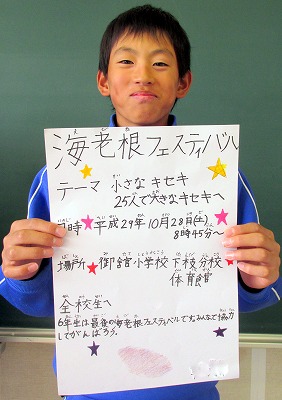 海老根フェスティバル
テーマ 小さなキセキ
25人で大きなキセキへ
日時 平成29年10月28日(土)
8時45分～
場所 御舘小学校 下枝分校
体育館
全校生へ
6年生は最後の海老根フェスティバルです。みんなで協力
してがんばろう。